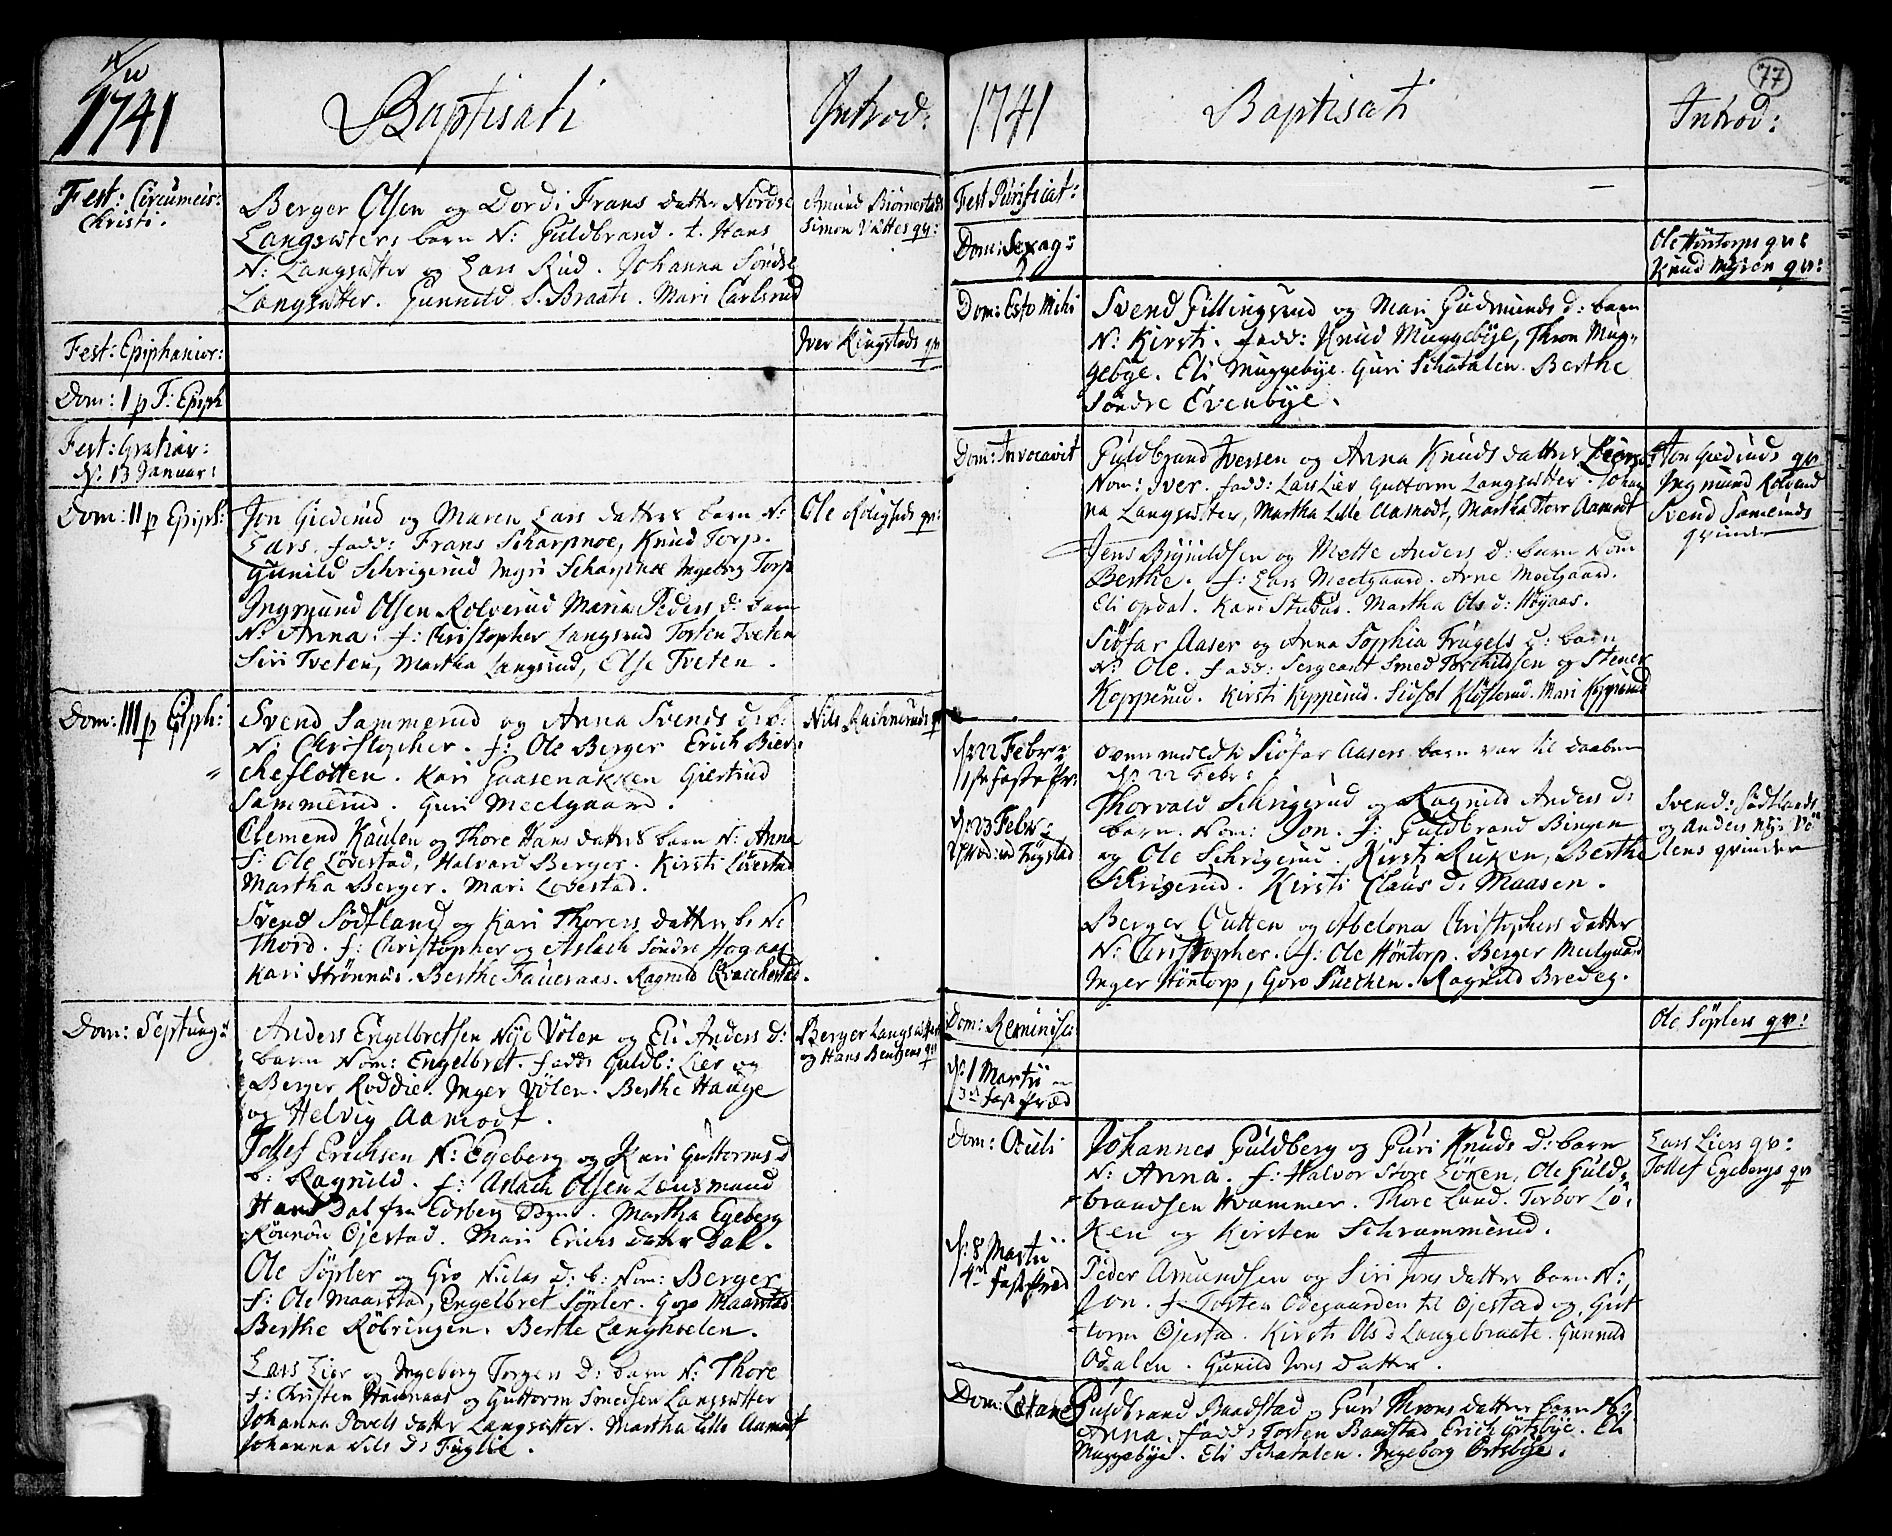 Ao
1741
Baptisati
Introd:
Fest: Circumcis:
Christi.
Berger Olsen og Dordi Frans datter Nordre
Langsæters barn N: Guldbrand. t. Hans
N: Langsætter og Lars Rud. Johanna Søndre
Langsætter. Gunnild S. Braate. Mari Carlsrud
Amund Biørnestads
Simon Vættes qv:
Fest: Epiphanior:
Iver Ringstads qv
Dom: I p F: Epiph
Fest: Gratiar:
d: 13 Januar:
Dom: II p Epiph:
Jon Giederud og Maren Lars datters barn N:
Lars. fadd: Frans Scharpnoe, Knud Torp.
Gunild Schrigerud Ingri Scharpnoe Ingeborg Torp
Ingmund Olsen Rolverud Maria Peders d: barn
N: Anna: f: Christopher Langsrud Torsten Tveten
Siri Tveten, Martha Langsrud, Else Tveten.
Ole Roligheds qv:
Dom: III p Epiph:
Svend Sammerud og Anna Svends d: b:
N: Christopher. f: Ole Berger Erich Bier:
cheflotten. Kari Gaasenakken Giertrud
Sammerud. Guri Meelgaard.
Clemend Kaulen og Thore Hans datters barn N: Anna
f: Ole Lodestad, Halvard Berger. Kirsti Lodestad
Martha Berger. Mari Lodestad.
Svend Södtland og Kari Thores datter b: N:
Thord. f: Christopher og Aslach Söndre Hogaas
Kari Strønnæs. Berthe Faueraas. Ragnild Krachestad.
Nils Rachneruds qv
Dom: Septuag:
Anders Engelbretsen Nye Völen og Eli Anders d:
barn Nom: Engelbret. fadd: Guldb: Lier og
Berger Roddie. Inger Völen. Berthe Hauge
og Helvig Aamodt.
Tollef Erichsen N: Egeberg og Kari Guttorms d
b: Ragnild. f: Aslach Olsen Lensmand
Hans Dal fra Edsberg Sogn. Martha Egeberg
Rönnou Öjestad. Mari Erichs datter Dal.
Ole Söpler og Gro Nielss d: b: Nom: Berger
f: Ole Maarstad, Engelbret Söpler. Goro Maarstad
Berthe Röbringen. Berthe Langhoelen.
Lars Lier og Ingeborg Torgers d: barn N: Thore
f: Christen Haunaas og Guttorm Smedsen Langsætter
Johanna Povels datter Langsætter. Martha Lille Aamodt
Johanna Nils d: Fuglie.
Berger Langsætter
og Hans Bentsens qv
77
1741
Baptisati
Introd:
Fest Purificat:
Dom: Sexag:
Ole Höntorps qv:
Knud Myren qv:
Dom: Esto Mihi
Svend Fillingsrud og Mari Gudmunds d: barn
N: Kirsti. fadd: Knud Muggebye, Thron Mug-
gebye. Eli Muggebye. Guri Schatalen. Berthe
Söndre Evenbye.
Dom: Invocavit
Guldbrand Iversen og Anna Knuds datter Liers
Nom: Iver. fadd: Lars Lier Guttorm Langsætter. Johan
na Langsætter, Martha Lille Aamodt, Martha Store Aamodt
Jens Brynildsen og Mette Anders d: barn Nom
Berthe. f: Lars Meelgaard. Arne Meelgaard.
Eli Opdal. Kari Stubæs. Martha Ols d: Höyaas.
Siöfar Aaser og Anna Sophia Frugels d: barn
N: Ole. fadd: Sergeant Smed Torchildsen og Stener
Kopperud. Kirsti Kopperud. Sidsel Klosterud. Mari Kopperud
Jon Giederuds qv
Ingmund Rolverud
Svend Samerids
qvinder
d: 22 Febr:
1ste Faste Pr:
ovenmeldte Siöfar Aasers barn var til daaben
d: 22 Febr:
d: 23 Febr:
Thorvald Schrigerud og Ragnild Anders d:
barn. Nom: Jon. f: Guldbrand Bingen
og Ole Schrigerud. Kirsti Ruken, Berthe
Schrigerud. Kirsti Claus d: Maasen.
Berger Outten og Abelona Christophers datter
N: Christopher. f: Ole Höntorp. Berger Meelgaard
Inger Höntorp, Goro Puechen. Ragnild Bredeg.
Svend: Södtlands
og Anders Nye Vö
lens qvinder
Dom: Reminisc:
Ole Söplers qv:
d: 1 Martii
3die Faste Præd
Dom: Oculi
Johannes Guldberg og Guri Knuds d: barn
N: Anna. f: Halvor Store Löken, Ole Guld-
brandsen Kvammer. Thore Lund. Torbor Lö-
ken og Kirsten Schrammerud.
Lars Liers qv:
Tollef Egebergs qv
d: 8 Martii
4de Faste Præd
Peder Amundsen og Siri Jons datter barn N:
Jon. f: Torsten Ödegaarden til Öjestad og Gut
torm Öjestad. Kirsti Ols d Langebraate. Gunnild
Odalen. Gunild Jons datter.
Dom: Lætare
Guldbrand Baadstad og Guri Throns datter barn N:
Anna. fadd: Torsten Baadstad Erich Ortsbye. Eli
Muggebye. Eli Schatalen. Ingeborg Ortsbye.